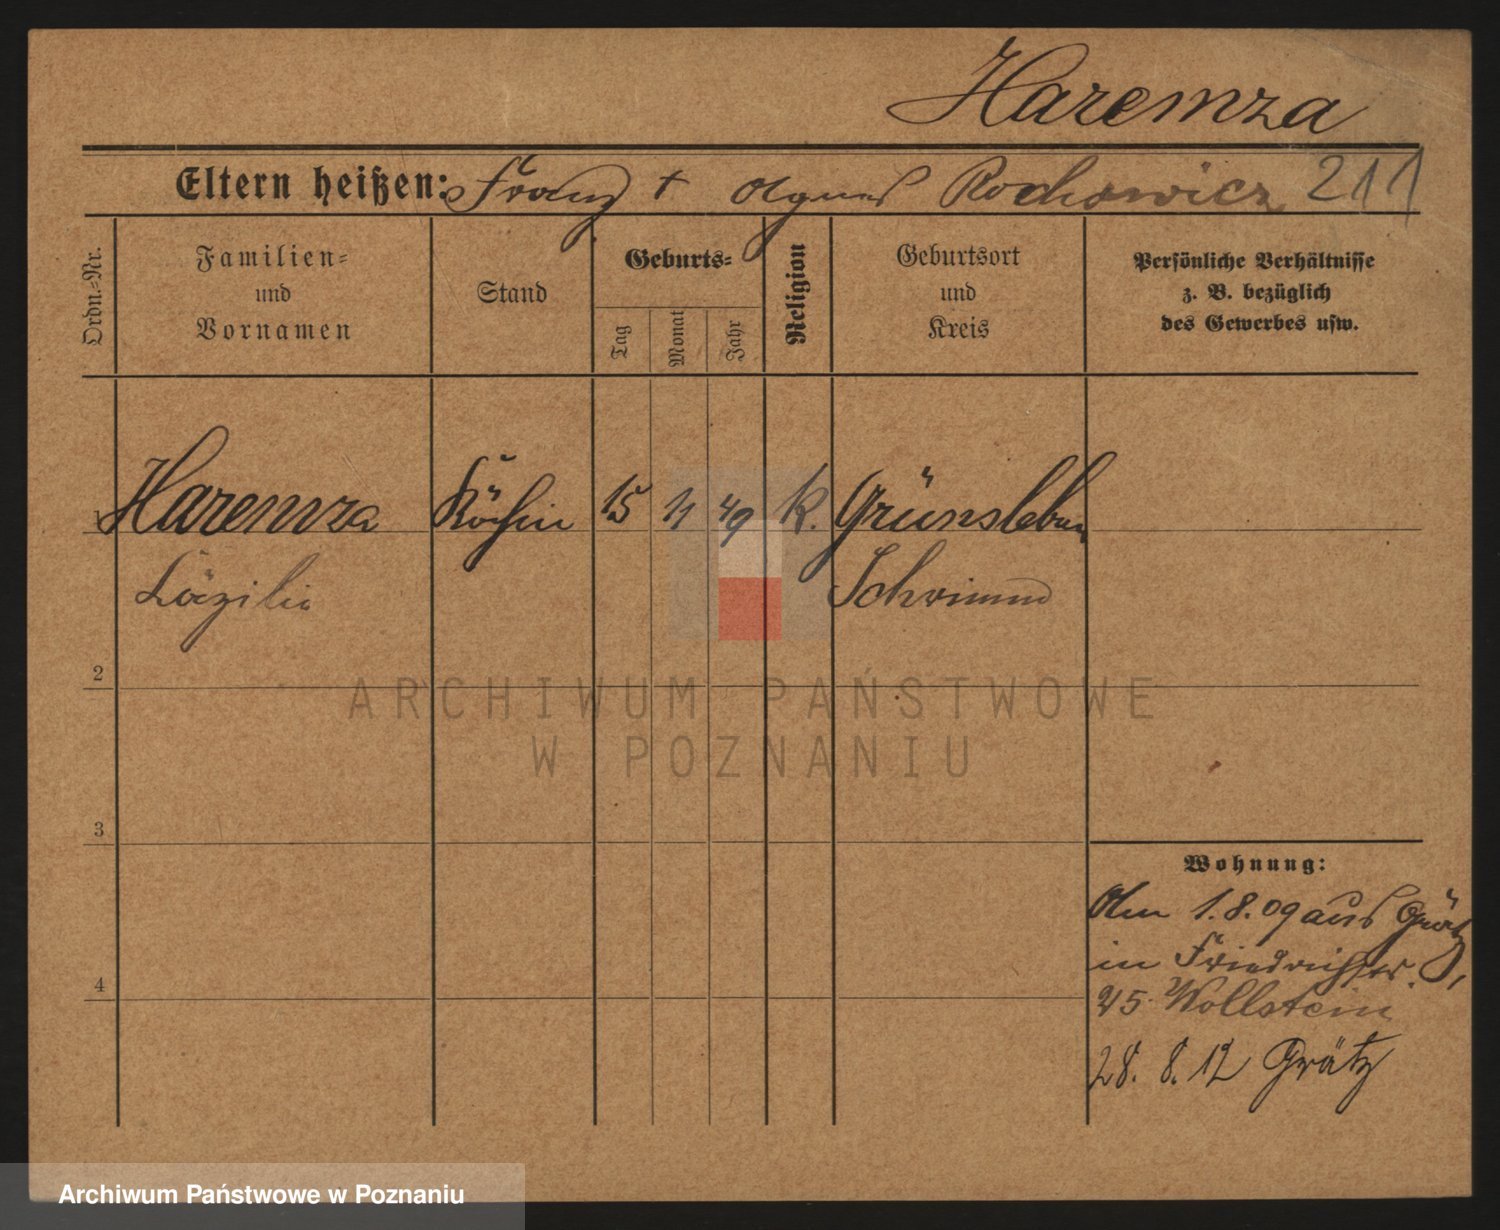 Haremza
Eltern heißen: Franz + Agnes Rochowicz 211
Ordn.=Nr.
Familien=
und
Vornamen
Stand
Geburts=
Tag
Monat
Jahr
Religion
Geburtsort
und
Kreis
Persönliche Verhältnisse
z. B. bezüglich
des Gewerbes usw.
1 Haremza Köchin 15 11 49 k. Grünsleben
Cäzilie Schrimm
2
ARCHIWUM PAŃSTWOWE
W POZNANIU
3
Wohnung:
Am 1.8.09 aus Grätz
in
4
45 Wollstein
28. 8. 12 Grätz
Archiwum Państwowe w Poznaniu